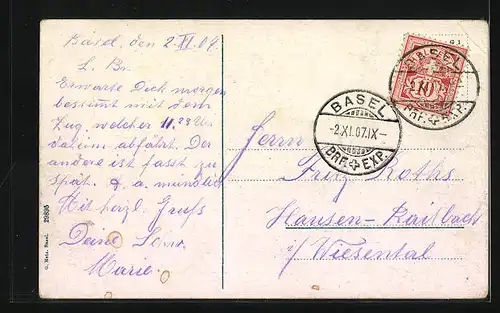 Basel, den 2. XI. 07.
L. Br.
Erwarte Dich morgen
bestimmt mit dem
Zug, welcher 11.23 Uhr
daheim abfährt. Der
andere ist fast zu
spät. & a. mündlich
Mit herzl. Gruß
Deine
Marie.
Herrn
Fritz Roths
Hausen-Raitbach
i/ Wiesental
BASEL
-2.XI.07.IX-
BRF. EXP.
BASEL
10
BRF. EXP.
29895
G. Metz, Basel.